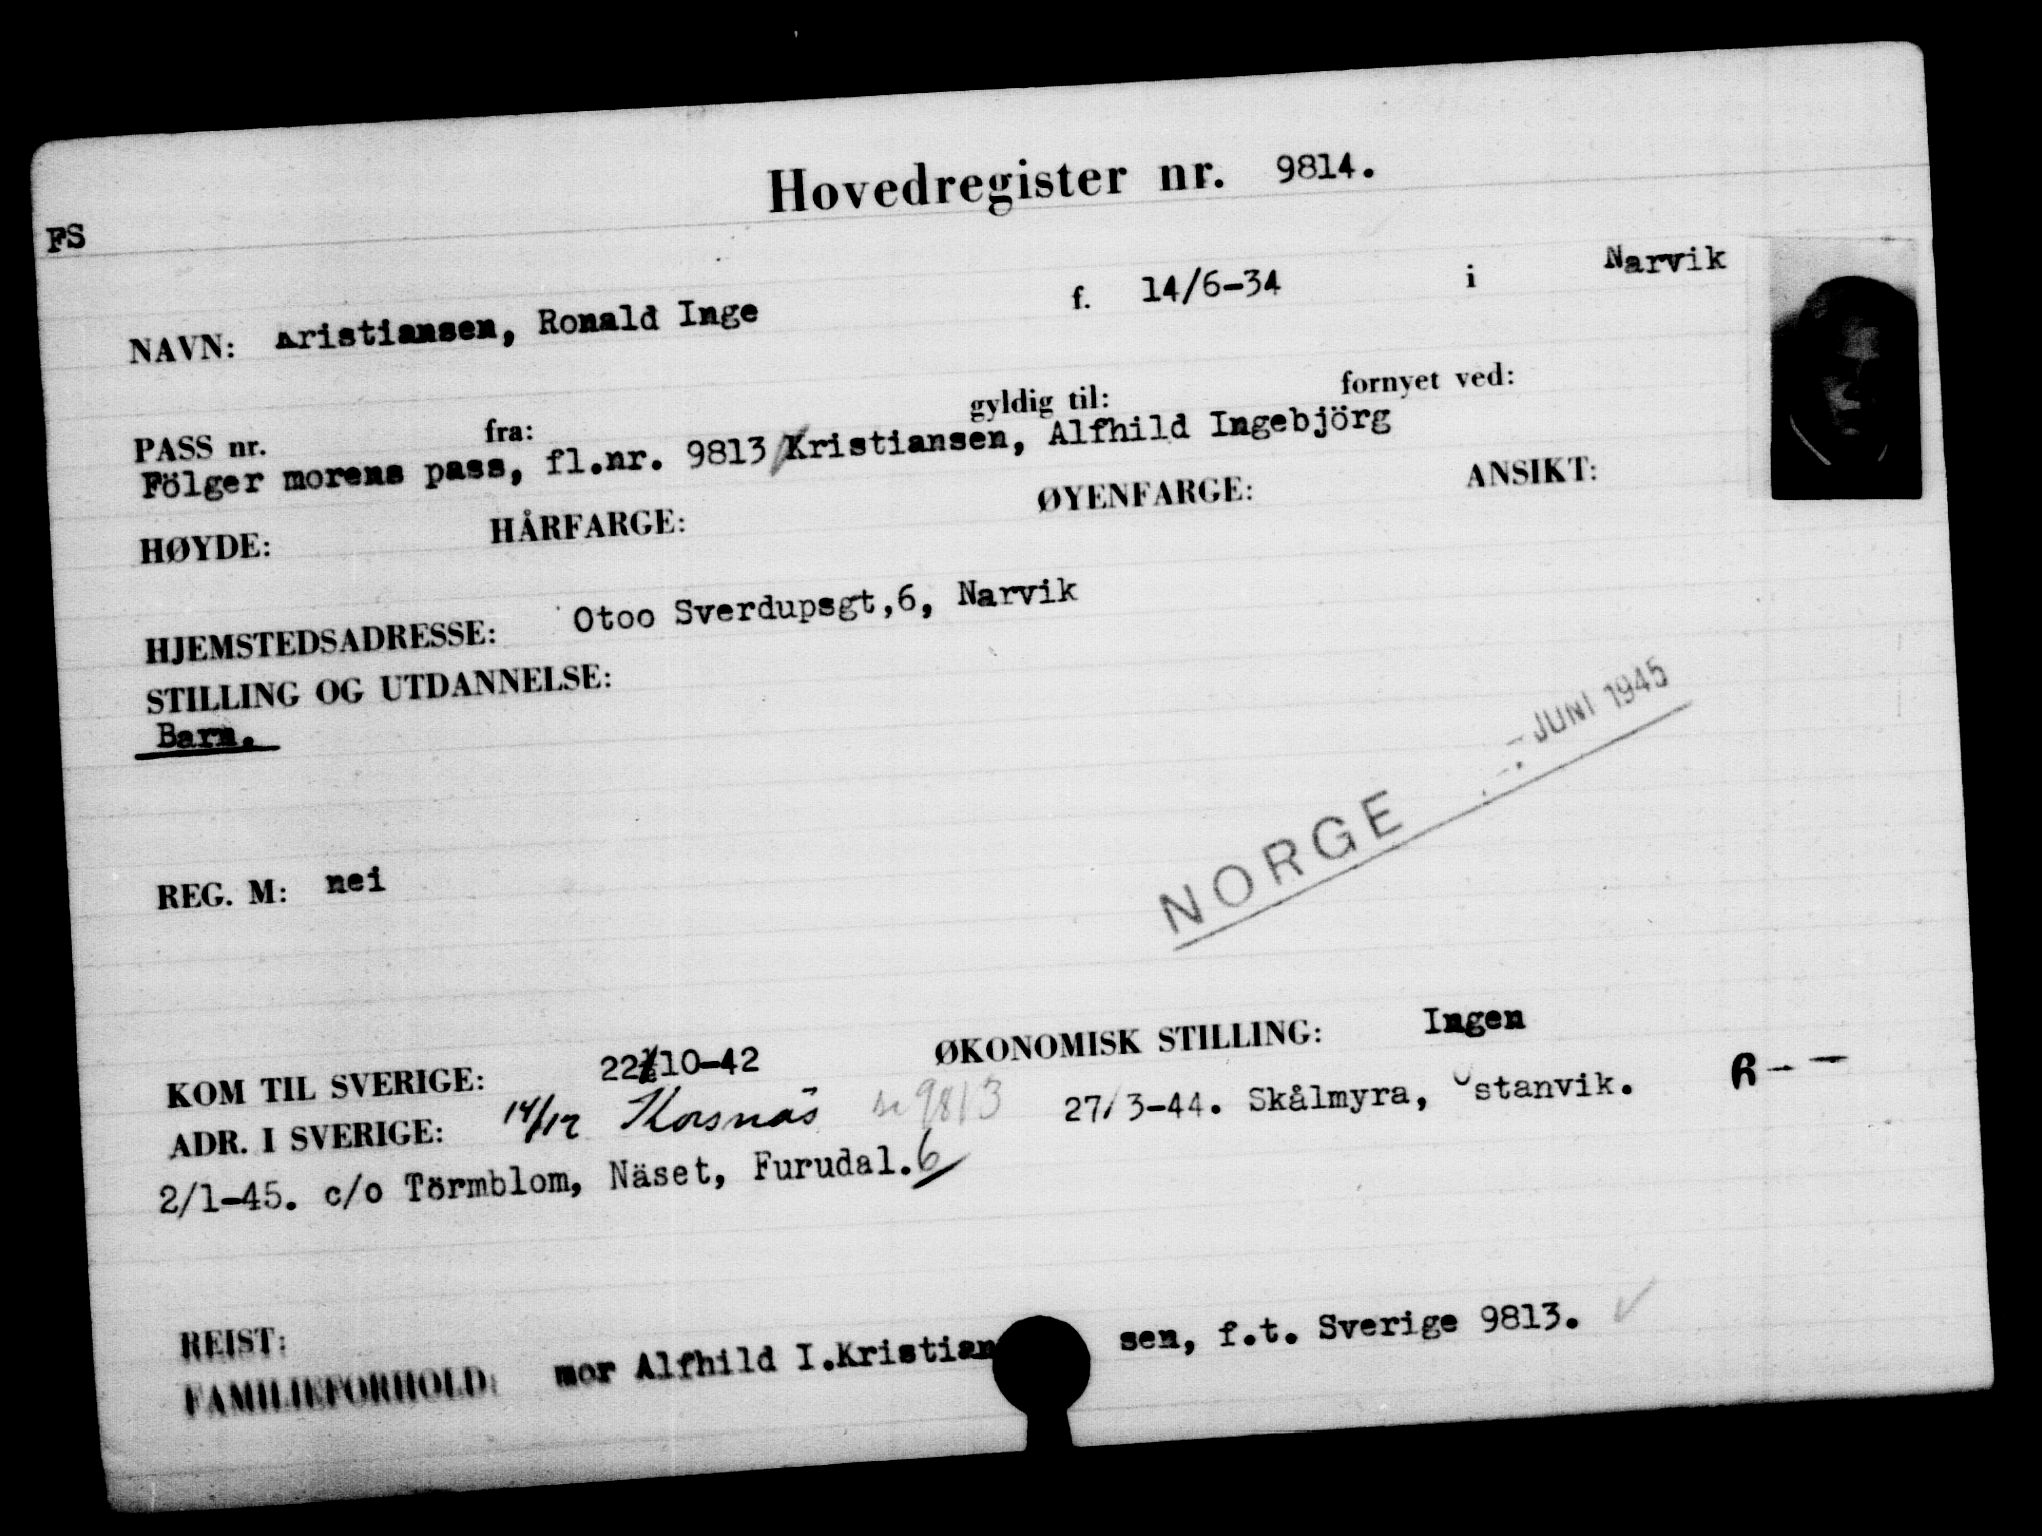 Hovedregister nr. 9814.
FS
NAVN: Kristiansen, Ronald Inge f. 14/6-34 i Narvik
PASS nr. fra: gyldig til: fornyet ved:
Fölger morens pass, fl.nr. 9813 Kristiansen, Alfhild Ingebjörg
HØYDE: HÅRFARGE: ØYENFARGE: ANSIKT:
HJEMSTEDSADRESSE: Otoo Sverdupsgt,6, Narvik
STILLING OG UTDANNELSE:
Barn.
NORGE - JUNI 1945
REG. M: nei
KOM TIL SVERIGE: 22/10-42 ØKONOMISK STILLING: Ingen
ADR. I SVERIGE: 14/12 Korsnäs 9813 27/3-44. Skålmyra, stanvik.
2/1-45. c/o Törmblom, Näset, Furudal. 6
REIST:
FAMILIEFORHOLD: mor Alfhild I.Kristian sen, f.t. Sverige 9813.